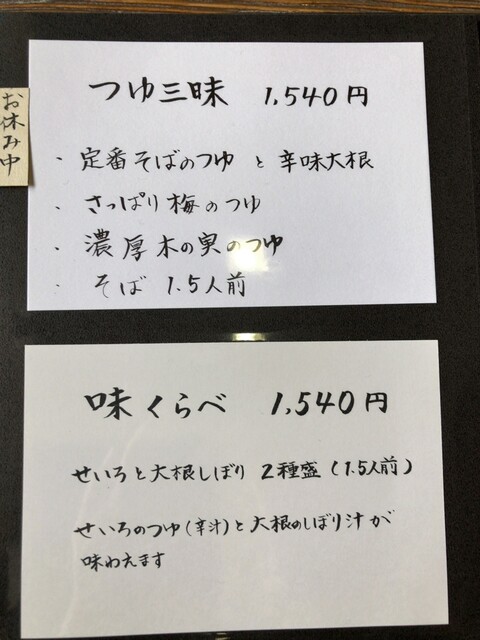 お休み中
つゆ三味 1,540円
・ 定番そばのつゆ と 辛味大根
・ さっぱり梅のつゆ
・ 濃厚木の実のつゆ
・ そば 1.5人前
味くらべ 1,540円
せいろと大根しぼり 2種盛(1.5人前)
せいろのつゆ(辛汁)と大根のしぼり汁が
味わえます